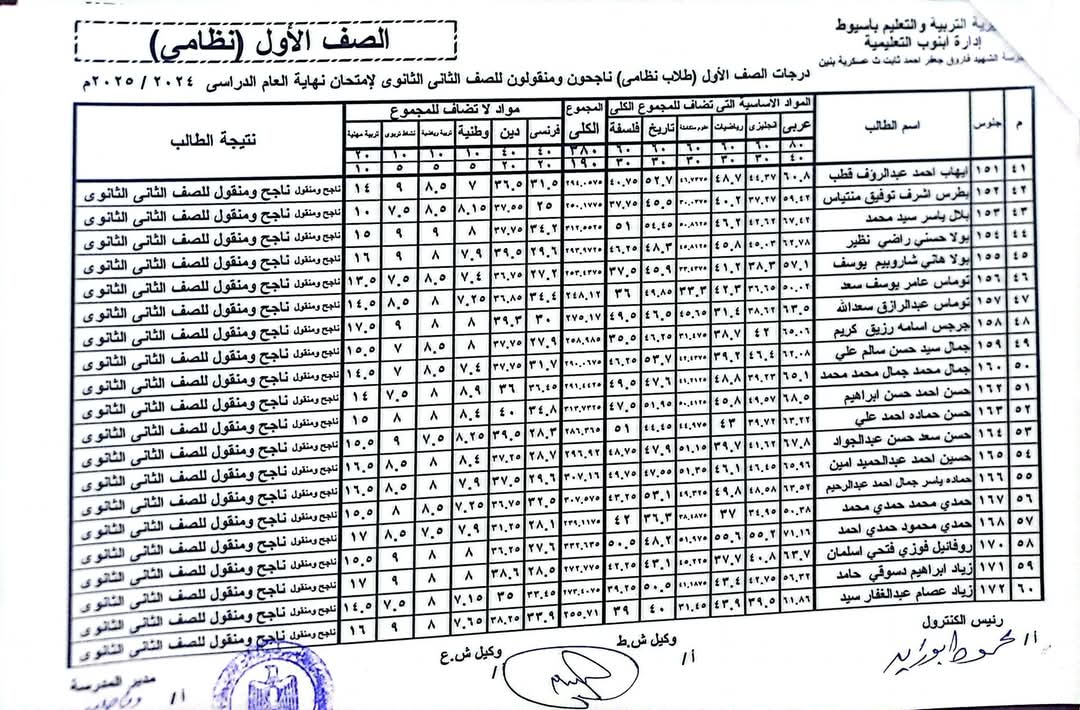 ـرية التربية والتعليم بأسيوط
إدارة ابنوب التعليمية
ـدرسة الشهيد فاروق جعفر احمد ثابت ث عسكرية بنين
الصف الأول (نظامى)
درجات الصف الأول (طلاب نظامى) ناجحون ومنقولون للصف الثانى الثانوى لإمتحان نهاية العام الدراسى ٢٠٢٤ / ٢٠٢٥م
م جلوس اسم الطالب المواد الاساسية التى تضاف للمجموع الكلى المجموع الكلى مواد لا تضاف للمجموع نتيجة الطالب
عربى انجليزى رياضيات علوم متكاملة تاريخ فلسفة فرنسى دين وطنية تربية رياضية نشاط تربوى تربية مهنية
٨٠ ٦٠ ٦٠ ٦٠ ٦٠ ٦٠ ٣٨٠ ٤٠ ٤٠ ١٠ ١٠ ١٠ ٢٠
٤٠ ٣٠ ٣٠ ٣٠ ٣٠ ٣٠ ١٩٠ ٢٠ ٢٠ ٥ ٥ ٥ ١٠
٤١ ١٥١ ايهاب احمد عبدالرؤف قطب ٦٠.٨ ٤٤.٣٧ ٤٨.٧ ٤٦.٧٣٧٥ ٥٢.٧ ٤٠.٧٥ ٢٩٤.٠٥٧٥ ٣١.٥ ٣٦.٥ ٧ ٨.٥ ٩ ١٤ ناجح ومنقول ناجح ومنقول للصف الثانى الثانوى
٤٢ ١٥٢ بطرس اشرف توفيق منتياس ٥٩.٤٢ ٣٧.٢٧ ٤٠.٢ ٣٠.٠٣٧٥ ٤٥.٥ ٣٧.٧٥ ٢٥٠.١٧٧٥ ٢٥ ٣٧.٥٥ ٨.١٥ ٨.٥ ٧.٥ ١٠ ناجح ومنقول ناجح ومنقول للصف الثانى الثانوى
٤٣ ١٥٣ بلال ياسر سيد محمد ٦٧.٤٢ ٤٢.٦٢ ٤٦.٢ ٥٠.٨٦٢٥ ٥٤.٤٥ ٥١ ٣١٢.٥٥٢٥ ٣٤.٢ ٣٧.٧٥ ٨ ٩ ٩ ١٥ ناجح ومنقول ناجح ومنقول للصف الثانى الثانوى
٤٤ ١٥٤ بولا حسني راضي نظير ٦٢.٧٨ ٤٥.٠٣ ٤٥.٨ ٤٥.٨١٢٥ ٤٨.٣ ٤٦.٢٥ ٢٩٣.٩٧٢٥ ٢٩.٦ ٣٩.٥ ٧.٩ ٨ ٩ ١٦ ناجح ومنقول ناجح ومنقول للصف الثانى الثانوى
٤٥ ١٥٥ بولا هاني شاروبيم يوسف ٥٧.١ ٣٨.٣ ٤١.٢ ٣٣.٤٣٧٥ ٤٥.٩ ٣٧.٥ ٢٥٣.٤٣٧٥ ٢٧.٢ ٣٦.٧٥ ٧.٤ ٨.٥ ٧.٥ ١٣.٥ ناجح ومنقول ناجح ومنقول للصف الثانى الثانوى
٤٦ ١٥٦ توماس عامر يوسف سعد ٥٠.٠٢ ٣٦.٦٥ ٤٢.٣ ٣٣.٣ ٤٩.٨٥ ٣٦ ٢٤٨.١٢ ٣٤.٤ ٣٦.٨٥ ٧.٢٥ ٨ ٨.٥ ١٤.٥ ناجح ومنقول ناجح ومنقول للصف الثانى الثانوى
٤٧ ١٥٧ توماس عبدالرازق سعدالله ٦٣.٥ ٣٨.٦٢ ٣١.٤ ٤٥.٦٥ ٤٦.٥ ٤٩.٥ ٢٧٥.١٧ ٣٠ ٣٩.٣ ٨ ٨ ٩ ١٧.٥ ناجح ومنقول ناجح ومنقول للصف الثانى الثانوى
٤٨ ١٥٨ جرجس اسامه رزيق كريم ٦٥.٠٦ ٤٢ ٣٨.٧ ٣١.٤٧٥ ٤٦.٢٥ ٣٥.٥ ٢٥٨.٩٨٥ ٢٧.٩ ٣٧.٧٥ ٨ ٨.٥ ٧ ١٥.٥ ناجح ومنقول ناجح ومنقول للصف الثانى الثانوى
٤٩ ١٥٩ جمال سيد حسن سالم علي ٦٢.٠٨ ٤٦.٤ ٣٩.٢ ٤٢.٤٣٧٥ ٥٣.٧ ٤٦.٢٥ ٢٩٠.٠٦٧٥ ٣١.٧ ٣٧.٧٥ ٧.٤ ٨.٥ ٧ ١٤.٥ ناجح ومنقول ناجح ومنقول للصف الثانى الثانوى
٥٠ ١٦٠ جمال محمد جمال محمد محمد ٦٥.١ ٣٩.٢٣ ٤٨.٨ ٤١.٢١٢٥ ٤٧.٦ ٤٩.٥ ٢٩١.٤٤٢٥ ٣٦.٤٥ ٣٦ ٨.٩ ٨ ٧.٥ ١٤ ناجح ومنقول ناجح ومنقول للصف الثانى الثانوى
٥١ ١٦٢ حسن احمد حسن ابراهيم ٦٨.٥ ٤٩.٥٧ ٤٥.٨ ٥٠.٤١٢٥ ٥١.٩٥ ٤٧.٥ ٣١٣.٧٣٢٥ ٣٤.٨ ٤٠ ٨.٤ ٨ ٨ ١٥ ناجح ومنقول ناجح ومنقول للصف الثانى الثانوى
٥٢ ١٦٣ حسن حماده احمد علي ٦٣.٢٢ ٣٩.٧٢ ٤٣ ٤٤.٩٧٥ ٤٤.٤٥ ٥١ ٢٨٦.٣٦٥ ٢٨.٣ ٣٩.٥ ٨.٢٥ ٧.٥ ٩ ١٥.٥ ناجح ومنقول ناجح ومنقول للصف الثانى الثانوى
٥٣ ١٦٤ حسن سعد حسن عبدالجواد ٦٧.٨ ٤١.٦٢ ٣٩.٧ ٥١.١٥ ٤٧.٩ ٤٨.٧٥ ٢٩٦.٩٢ ٢٨.٧ ٣٧.٢٥ ٨.٤ ٨ ٨.٥ ١٦.٥ ناجح ومنقول ناجح ومنقول للصف الثانى الثانوى
٥٤ ١٦٥ حسين احمد عبدالحميد امين ٦٥.٩٦ ٤٦.٤٥ ٤٦.١ ٥١.٣٥ ٤٧.٥٥ ٤٩.٧٥ ٣٠٧.١٦ ٢٩.٦ ٣٧.٥ ٧.٩ ٨ ٨.٥ ١٦.٥ ناجح ومنقول ناجح ومنقول للصف الثانى الثانوى
٥٥ ١٦٦ حماده ياسر جمال احمد عبدالرحيم ٦٣.٥٢ ٤٨.٥٨ ٤٩.٨ ٤٩.٣٢٥ ٥٣.١ ٤٣.٢٥ ٣٠٧.٥٧٥ ٣٢.٥ ٣٦.٧٥ ٧.٢٥ ٨.٥ ٨ ١٥.٥ ناجح ومنقول ناجح ومنقول للصف الثانى الثانوى
٥٦ ١٦٧ حمدي محمد حمدي محمد ٥٠.٣٨ ٣٤.٩٥ ٣٧ ٣٨.٤٨٧٥ ٣٦.٣ ٤٢ ٢٣٩.١١٧٥ ٢٨.١ ٣١.٢٥ ٧.٩ ٧.٥ ٨.٥ ١٧ ناجح ومنقول ناجح ومنقول للصف الثانى الثانوى
٥٧ ١٦٨ حمدي محمود حمدي احمد ٧١.١٦ ٥٥.٢ ٥٥.٦ ٥١.٩٧٥ ٤٨.٢ ٥٠.٥ ٣٣٢.٦٣٥ ٢٧.٦ ٣٦.٢٥ ٨ ٨ ٩ ١٥.٥ ناجح ومنقول ناجح ومنقول للصف الثانى الثانوى
٥٨ ١٧٠ روفانيل فوزي فتحي اسلمان ٦٣.٧ ٤٠.٨ ٣٧.٧ ٤٥.٢٢٥ ٤٣.١ ٤٢.٢٥ ٢٧٢.٧٧٥ ٢٨.٥ ٣٨.٦ ٨ ٨ ٩ ١٧ ناجح ومنقول ناجح ومنقول للصف الثانى الثانوى
٥٩ ١٧١ زياد ابراهيم دسوقي حامد ٥٦.٣٢ ٤٢.٧٥ ٤٣.٤ ٤١.١٨٧٥ ٥٠.٥ ٣٩.٢٥ ٢٧٣.٤٠٧٥ ٣٢.٤٥ ٣٥ ٧.١٥ ٨ ٧.٥ ١٤.٥ ناجح ومنقول ناجح ومنقول للصف الثانى الثانوى
٦٠ ١٧٢ زياد عصام عبدالغفار سيد ٦١.٨٦ ٣٩.٥ ٤٣.٩ ٣١.٤٥ ٤٠ ٣٩ ٢٥٥.٧١ ٣٣.٩ ٣٨.٢٥ ٧.٦٥ ٨ ٩ ١٦ ناجح ومنقول ناجح ومنقول للصف الثانى الثانوى
رئيس الكنترول
أ/ محمود ابوزيد
وكيل ش.ط
أ/
وكيل ش.ع
أ/
مدير المدرسة
أ/